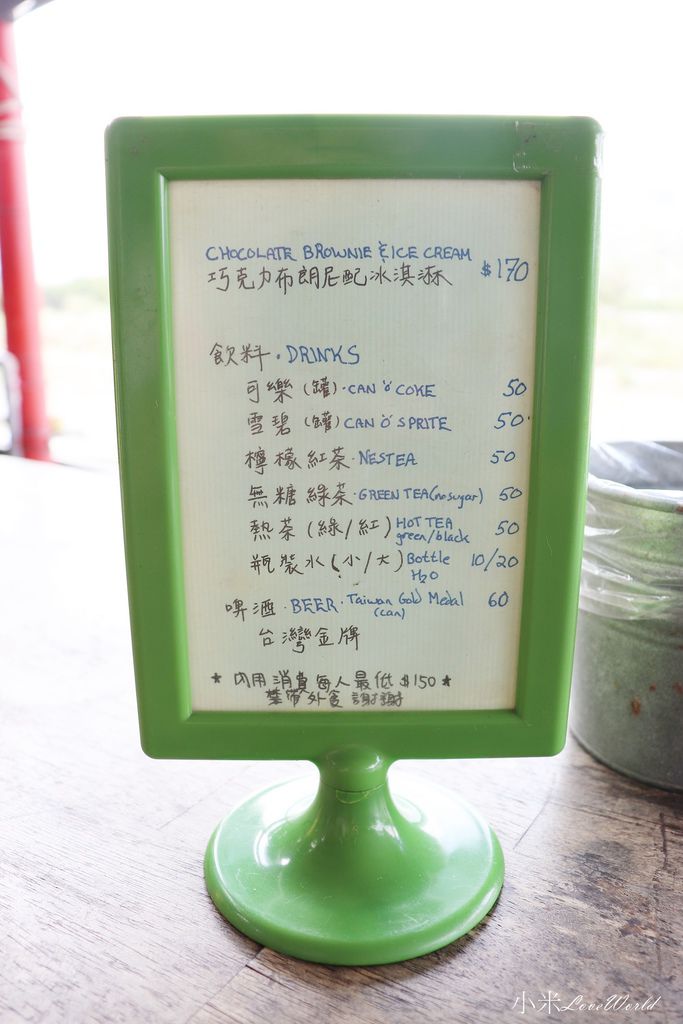 CHOCOLATE BROWNIE & ICE CREAM
巧克力布朗尼配冰淇淋 $170
飲料・DRINKS
可樂(罐)・CAN O' COKE 50
雪碧(罐)CAN O' SPRITE 50
檸檬紅茶・NESTEA 50
無糖綠茶・GREEN TEA (no sugar) 50
熱茶(綠/紅)HOT TEA green/black 50
瓶裝水(小/大)Bottle H₂O 10/20
啤酒・BEER・Taiwan Gold Medal (can) 60
台灣金牌
* 內用消費每人最低 $150 *
禁帶外食 謝謝
小米LoveWorld